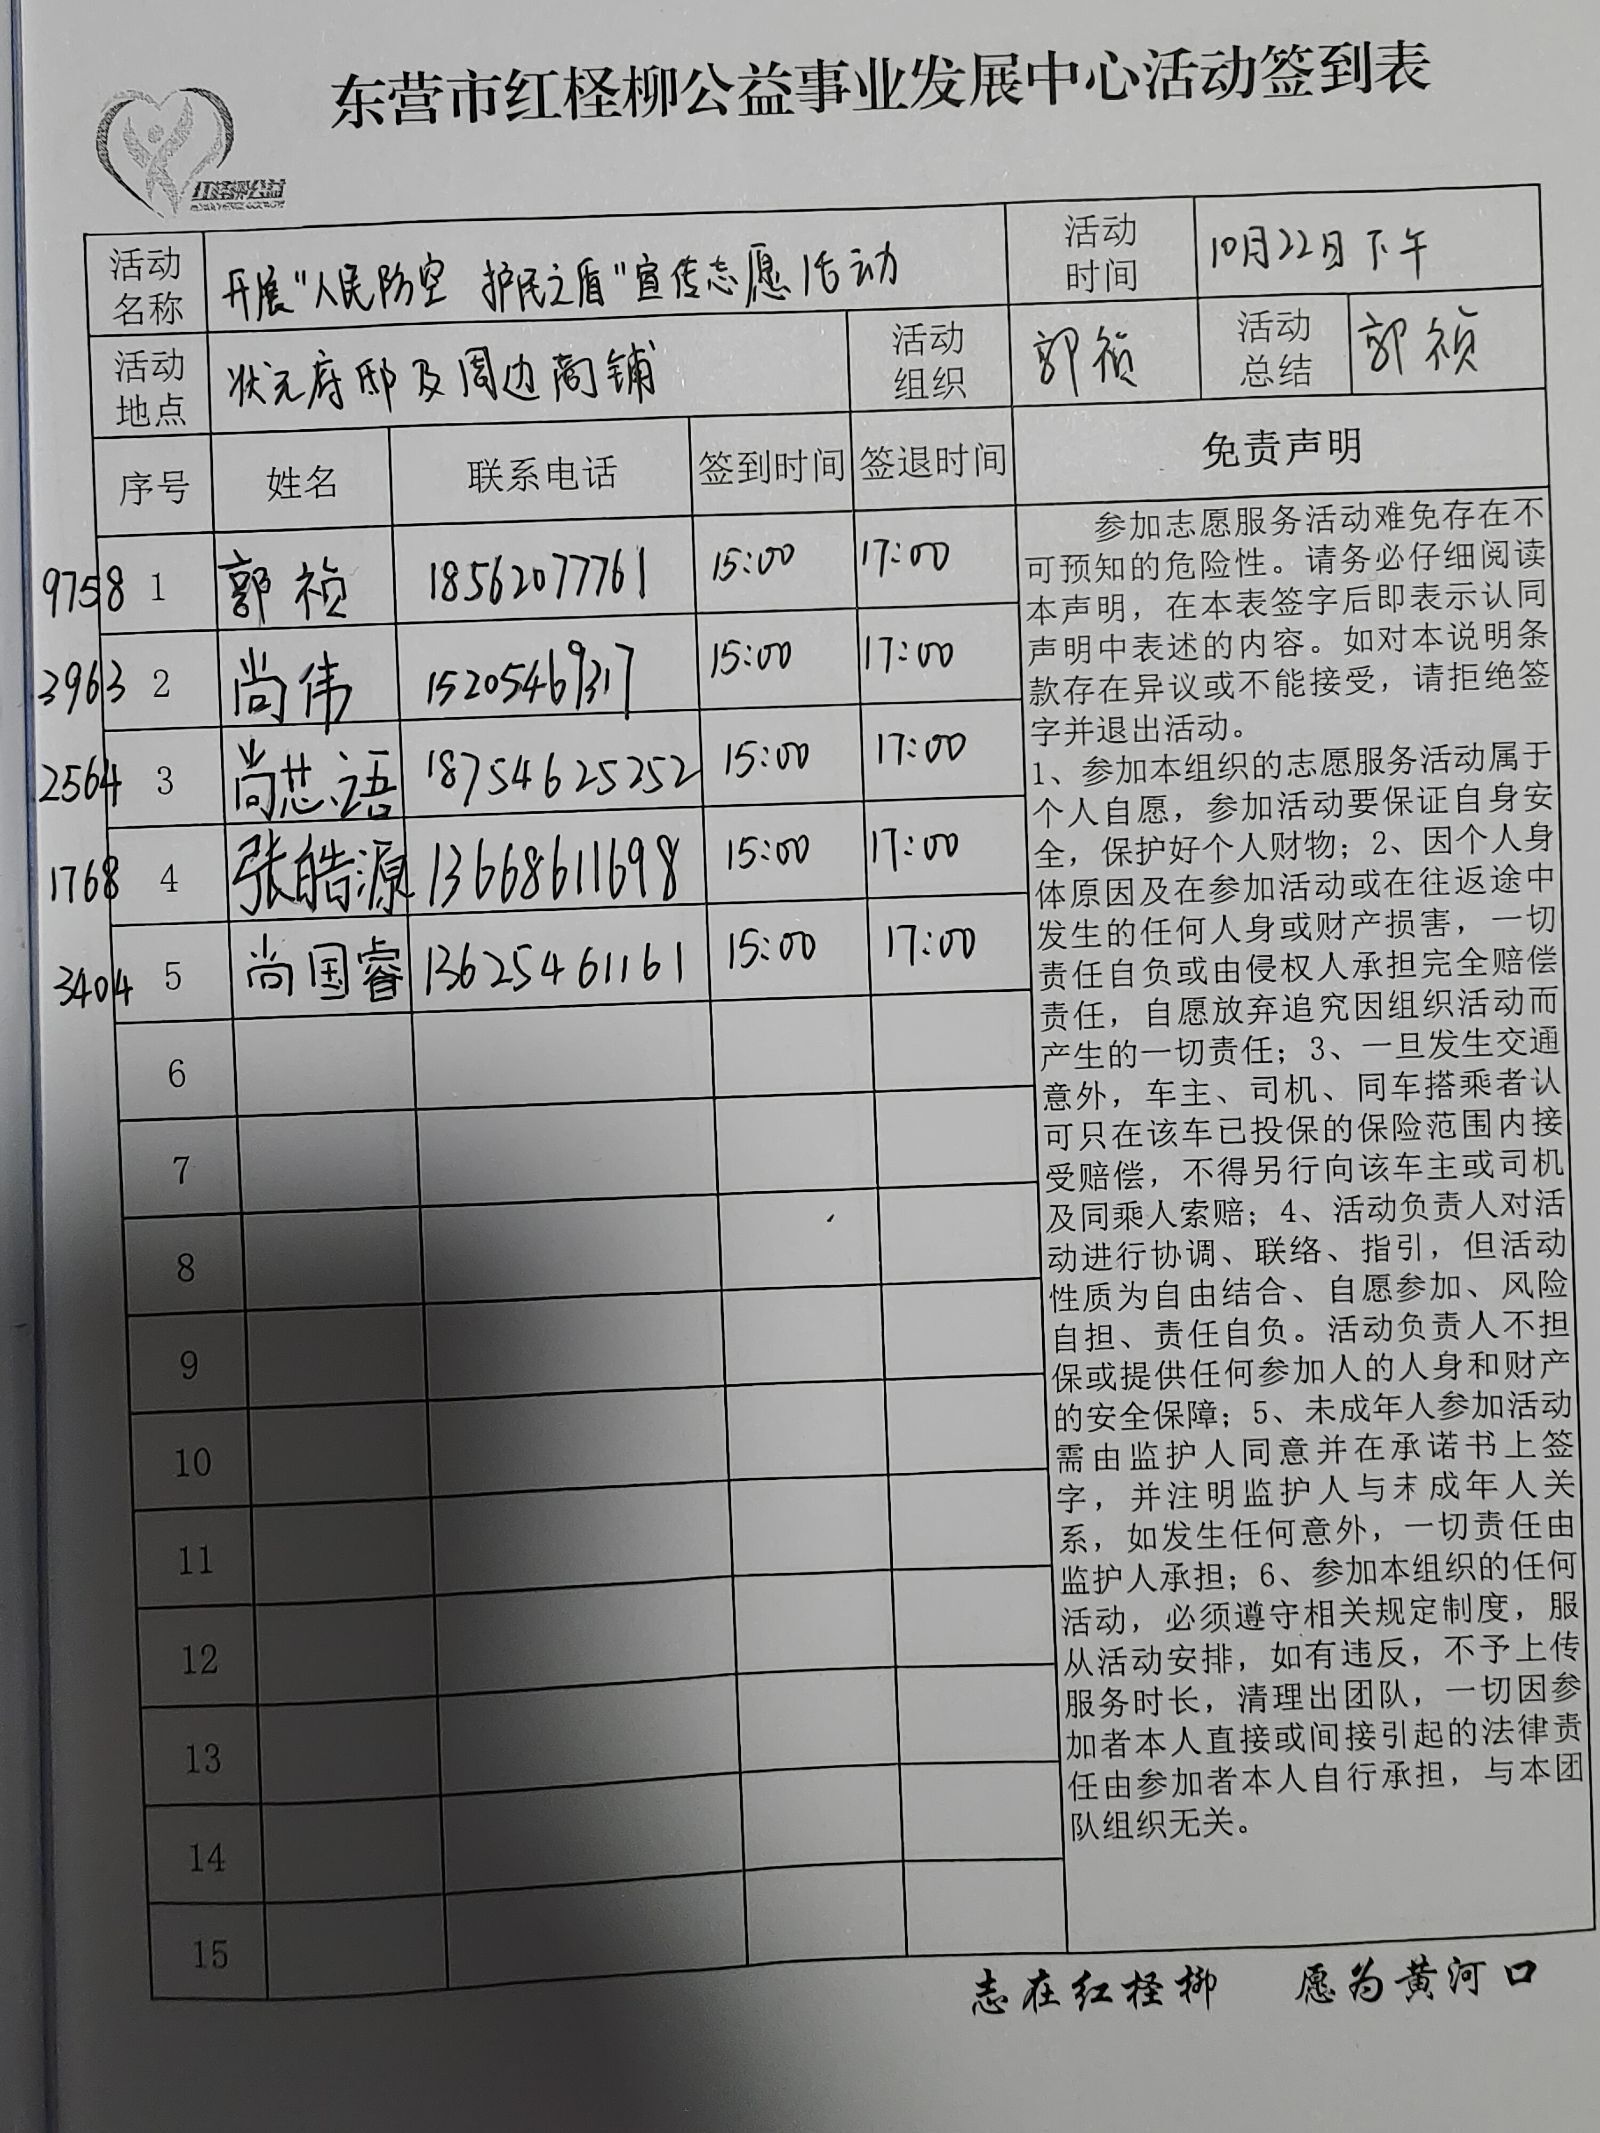 东营市红柽柳公益事业发展中心活动签到表
红柽柳公益
活动名称 开展"人民防空 护民之盾"宣传志愿活动 活动时间 10月22日下午
活动地点 状元府邸及周边商铺 活动组织 郭祯 活动总结 郭祯
序号 姓名 联系电话 签到时间 签退时间 免责声明
9758 1 郭祯 18562077761 15:00 17:00
3963 2 尚伟 15205469317 15:00 17:00
2564 3 尚芯语 18754625252 15:00 17:00
1768 4 张皓源 13668611698 15:00 17:00
3404 5 尚国睿 13625461161 15:00 17:00
6
7
8
9
10
11
12
13
14
15
参加志愿服务活动难免存在不
可预知的危险性。请务必仔细阅读
本声明，在本表签字后即表示认同
声明中表述的内容。如对本说明条
款存在异议或不能接受，请拒绝签
字并退出活动。
1、参加本组织的志愿服务活动属于
个人自愿，参加活动要保证自身安
全，保护好个人财物；2、因个人身
体原因及在参加活动或在往返途中
发生的任何人身或财产损害，一切
责任自负或由侵权人承担完全赔偿
责任，自愿放弃追究因组织活动而
产生的一切责任；3、一旦发生交通
意外，车主、司机、同车搭乘者认
可只在该车已投保的保险范围内接
受赔偿，不得另行向该车主或司机
及同乘人索赔；4、活动负责人对活
动进行协调、联络、指引，但活动
性质为自由结合、自愿参加、风险
自担、责任自负。活动负责人不担
保或提供任何参加人的人身和财产
的安全保障；5、未成年人参加活动
需由监护人同意并在承诺书上签
字，并注明监护人与未成年人关
系，如发生任何意外，一切责任由
监护人承担；6、参加本组织的任何
活动，必须遵守相关规定制度，服
从活动安排，如有违反，不予上传
服务时长，清理出团队，一切因参
加者本人直接或间接引起的法律责
任由参加者本人自行承担，与本团
队组织无关。
志在红柽柳 愿为黄河口